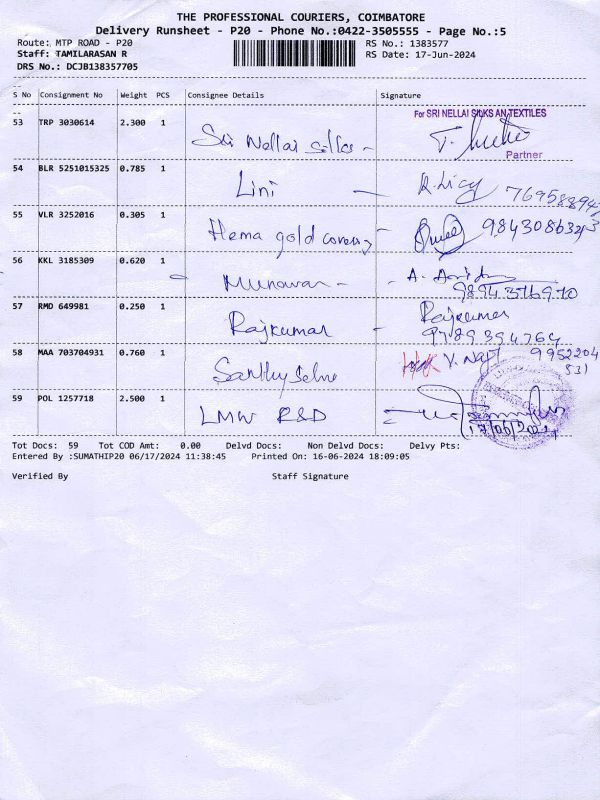 THE PROFESSIONAL COURIERS, COIMBATORE
Delivery Runsheet - P20 - Phone No.:0422-3505555 - Page No.:5
Route: MTP ROAD - P20
RS No.: 1383577
Staff: TAMILARASAN R
RS Date: 17-Jun-2024
DRS No.: DCJB138357705
S No Consignment No Weight PCS Consignee Details Signature
For SRI NELLAI SILKS AN TEXTILES
53 TRP 3030614 2.300 1 Sri Nellai silks -
Partner
54 BLR 5251015325 0.785 1 Lini - R. Licy
55 VLR 3252016 0.305 1 Hema gold covering
56 KKL 3185309 0.620 1 Munawar -
57 RMD 649981 0.250 1 Rajkumar - Rajkumar
9789394764
58 MAA 703704931 0.760 1 9952204
531
59 POL 1257718 2.500 1 LMW R&D
17/06/2024
Tot Docs: 59 Tot COD Amt: 0.00 Delvd Docs: Non Delvd Docs: Delvy Pts:
Entered By :SUMATHIP20 06/17/2024 11:38:45 Printed On: 16-06-2024 18:09:05
Verified By Staff Signature